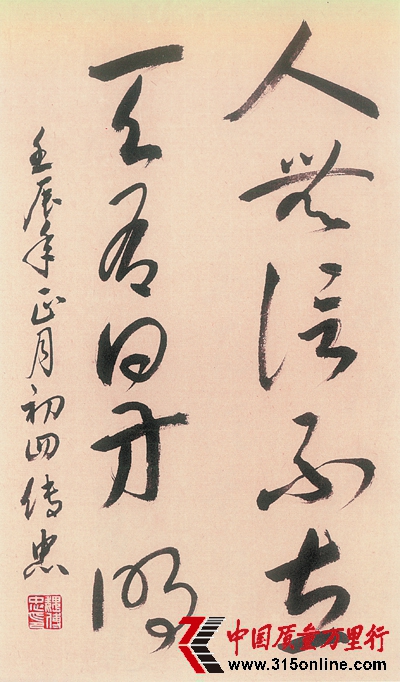 人無信不立
天有日方明
壬辰年正月初四傳忠
魏傳忠印
中国质量万里行
www.315online.com